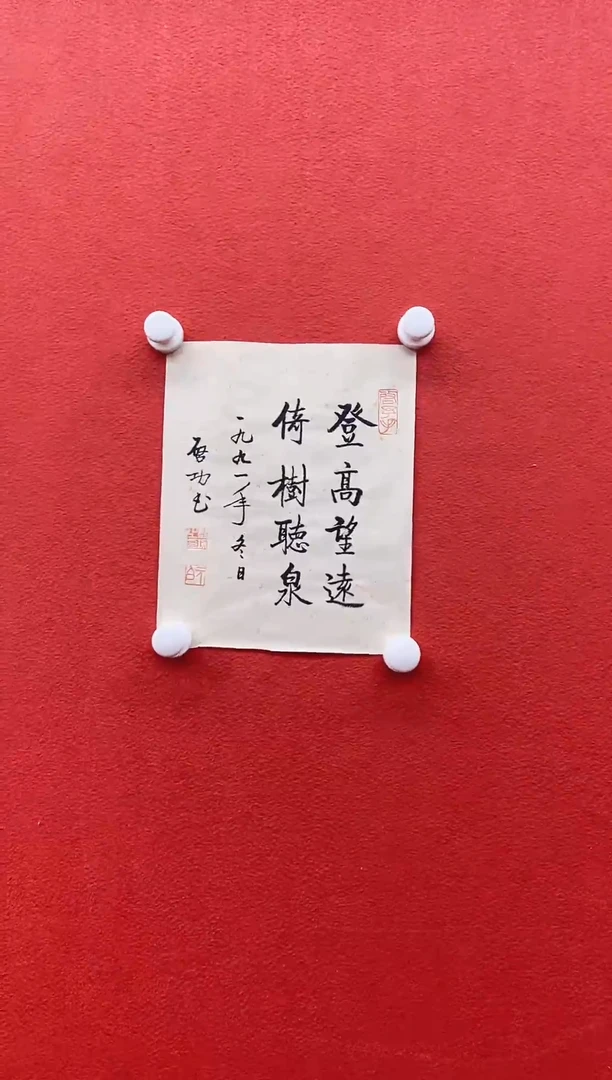 登高望遠
倚樹聽泉
一九九一年冬日
啓功书